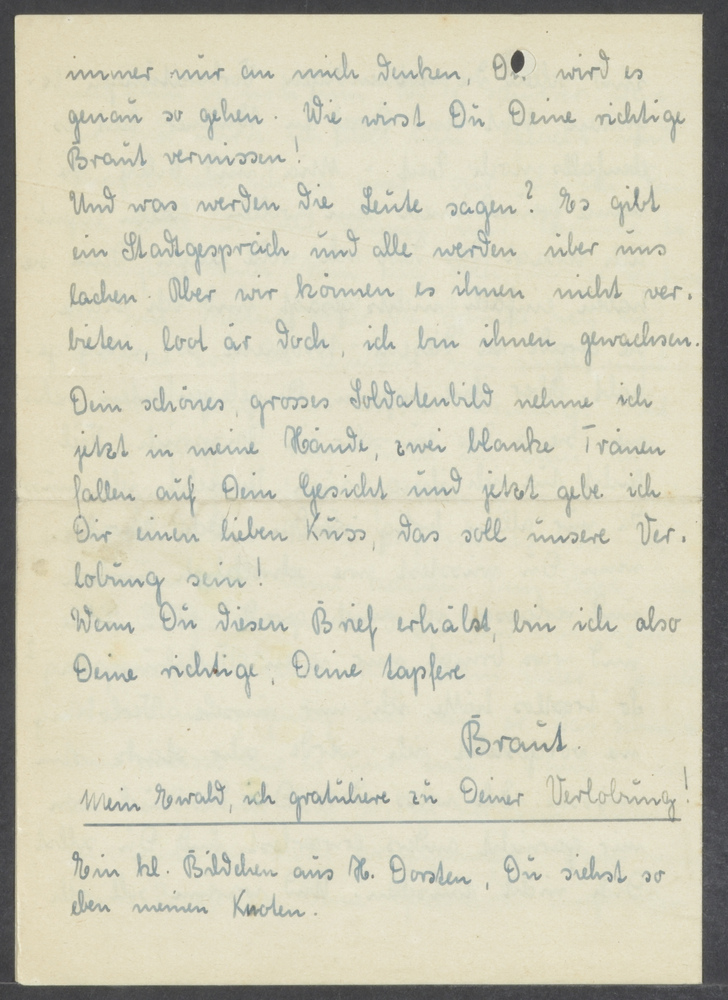 immer nur an mich denken, wird es
genau so gehen. Wie wirst Du Deine richtige
Braut vermissen!
Und was werden die Leute sagen? Es gibt
ein Stadtgespräch und alle werden über uns
lachen. Aber wir können es ihnen nicht ver-
bieten, loot är doch, ich bin ihnen gewachsen.
Dein schönes, grosses Soldatenbild nehme ich
jetzt in meine Hände, zwei blanke Tränen
fallen auf Dein Gesicht und jetzt gebe ich
Dir einen lieben Kuss, das soll unsere Ver-
lobung sein!
Wenn Du diesen Brief erhälst, bin ich also
Deine richtige, Deine tapfere
Braut.
Mein Ewald, ich gratuliere zu Deiner Verlobung!
Ein kl. Bildchen aus H. Dorsten, Du siehst so
eben meinen Knoten.